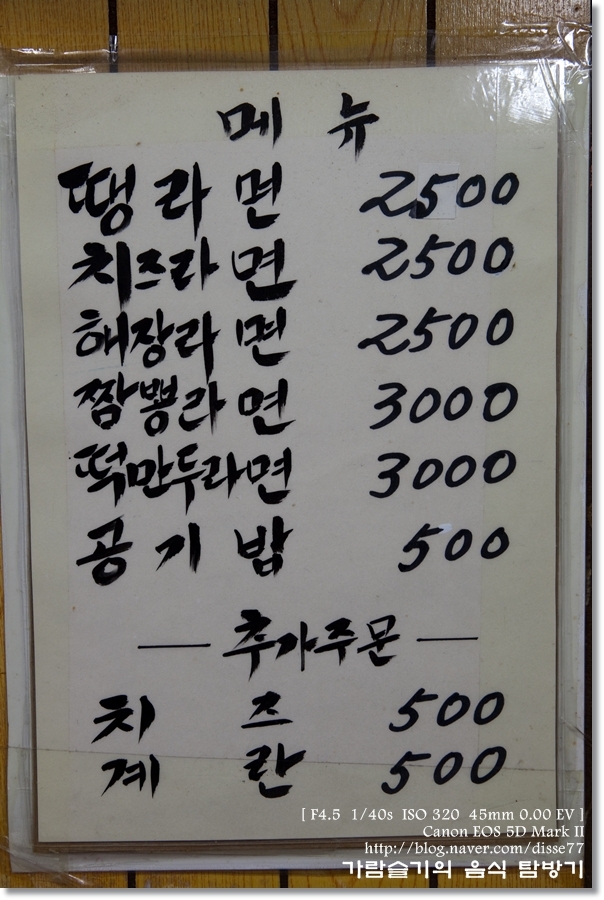 메뉴
땡라면 2500
치즈라면 2500
해장라면 2500
짬뽕라면 3000
떡만두라면 3000
공기밥 500
추가주문
치즈 500
계란 500
[ F4.5 1/40s ISO 320 45mm 0.00 EV ]
Canon EOS 5D Mark II
http://blog.naver.com/disse77
가람슬기의 음식 탐방기